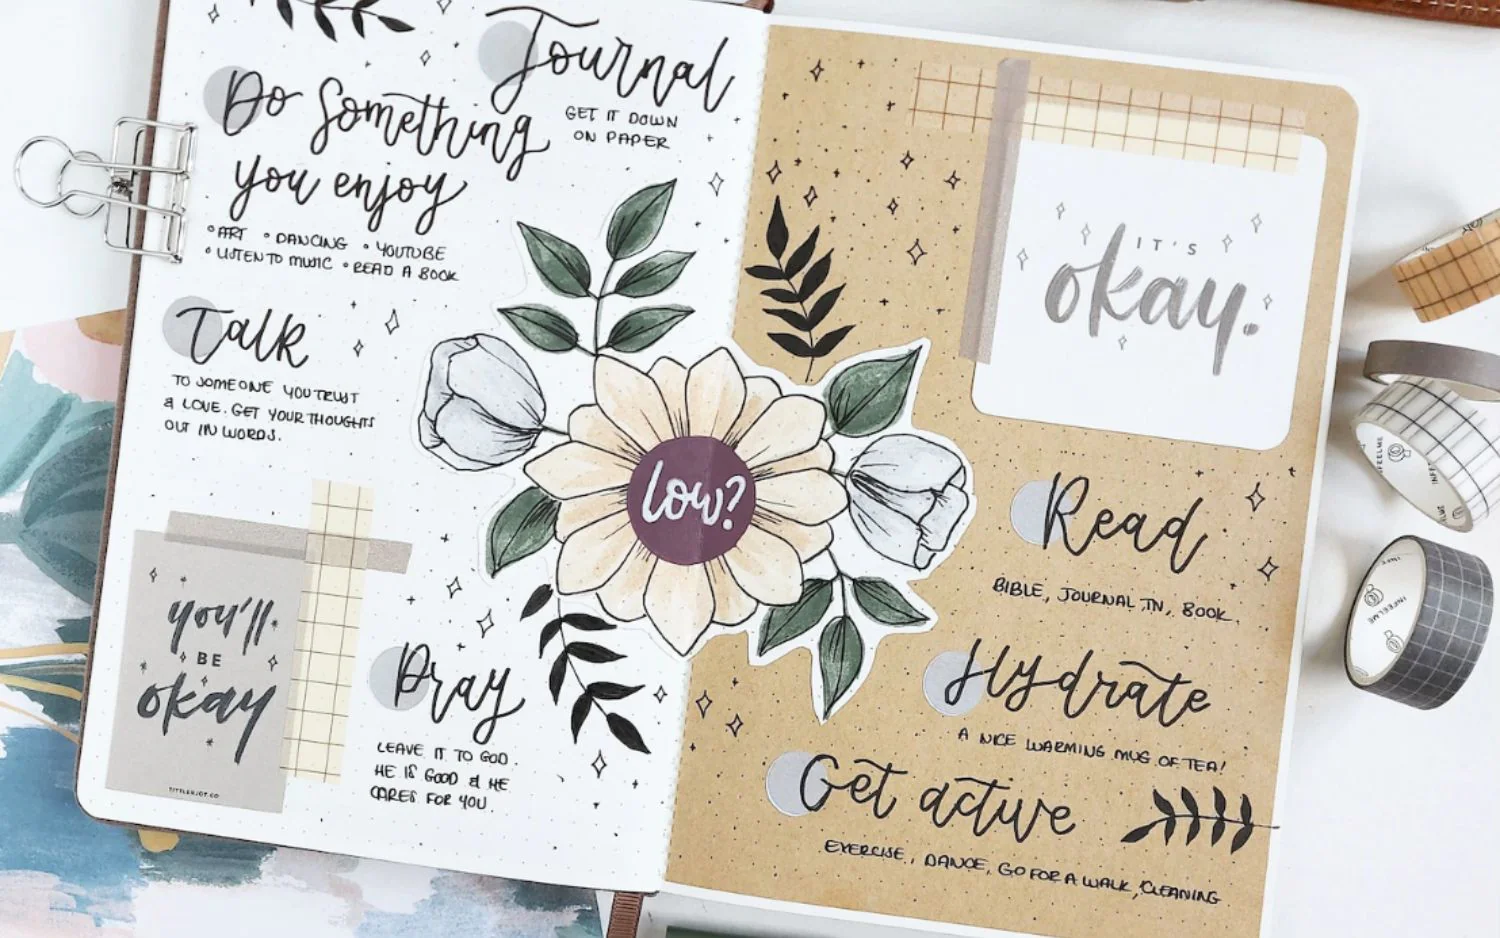 Journal
GET IT DOWN
ON PAPER
Do Something
you enjoy
• ART • DANCING • YOUTUBE
• LISTEN TO MUSIC • READ A BOOK
Talk
TO SOMEONE YOU TRUST
& LOVE. GET YOUR THOUGHTS
OUT IN WORDS.
you'll
BE
okay
Pray
LEAVE IT TO GOD.
HE IS GOOD & HE
CARES FOR YOU.
low?
IT'S
okay.
Read
BIBLE, JOURNAL, TN, BOOK.
Hydrate
A NICE WARMING MUG OF TEA!
Get active
EXERCISE, DANCE, GO FOR A WALK, CLEANING
INFEELME
INFEELME